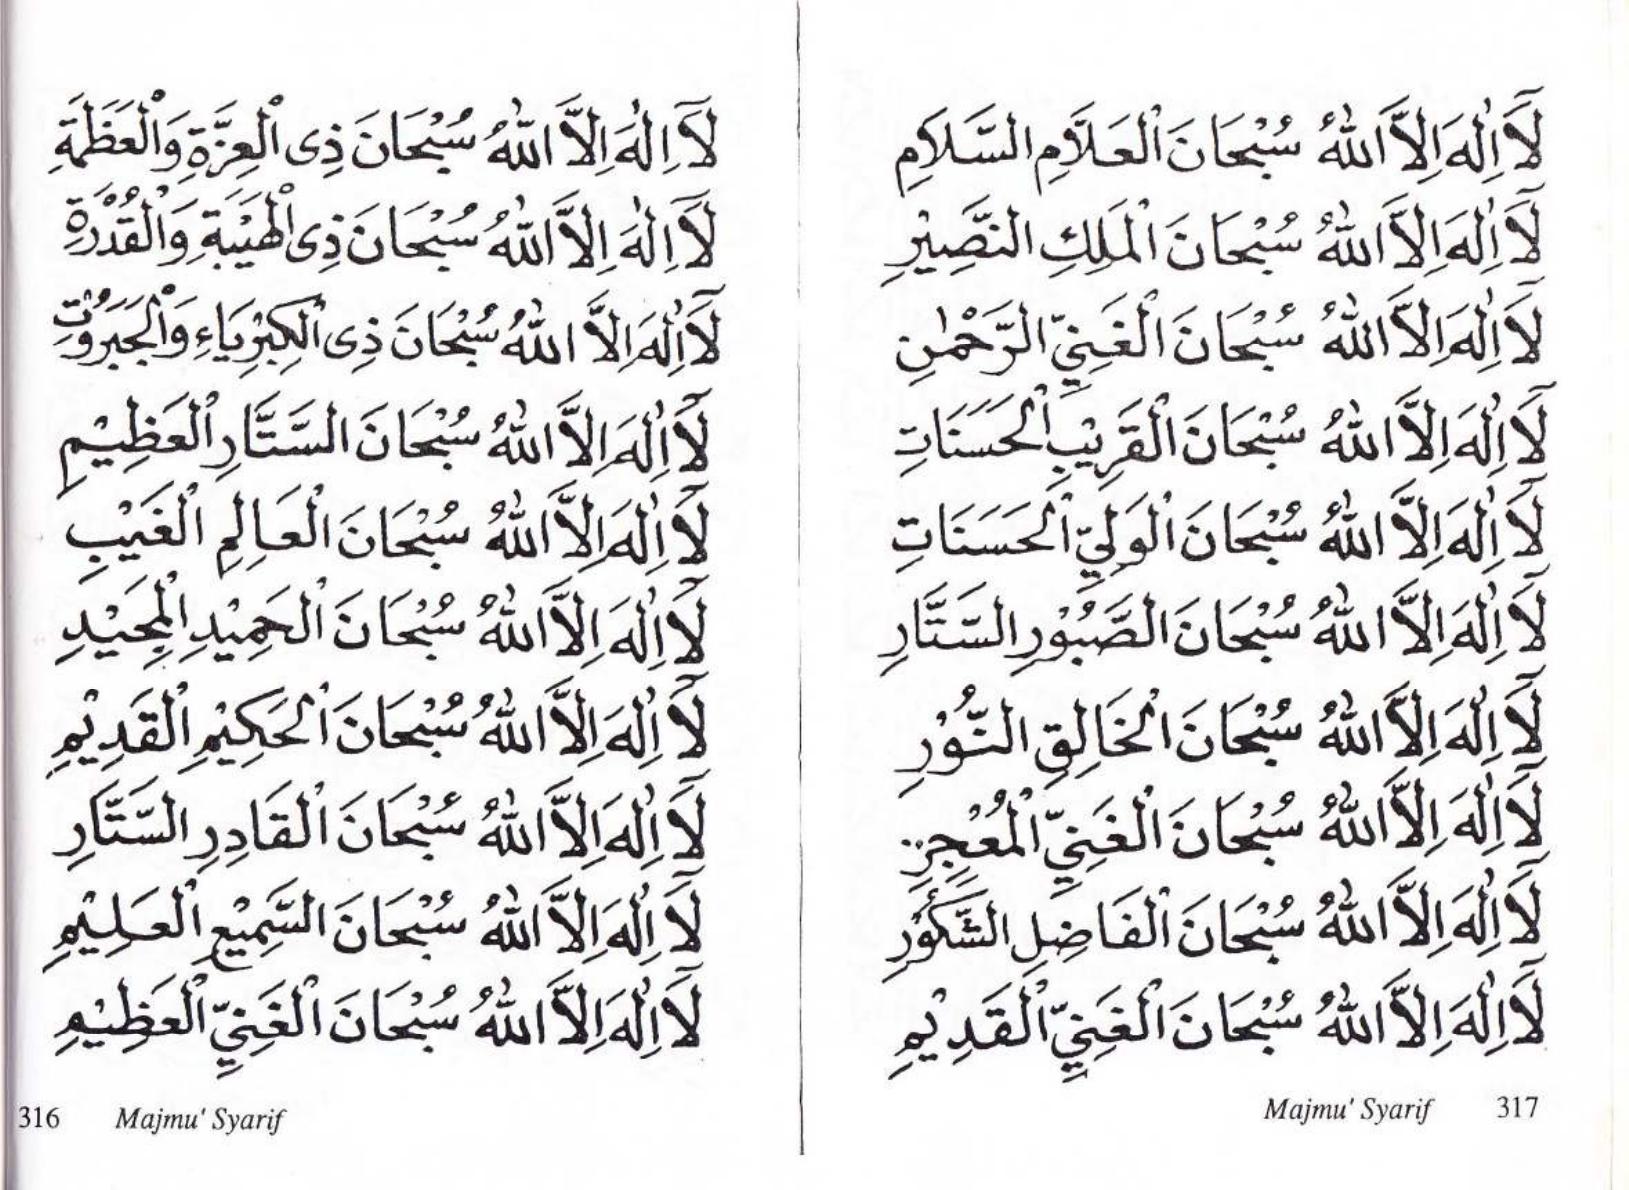 لَآ اِلٰهَ اِلَّا اللّٰهُ سُبْحَانَ ذِى الْعِزَّةِ وَالْعَظَمَةِ
لَآ اِلٰهَ اِلَّا اللّٰهُ سُبْحَانَ ذِى الْهَيْبَةِ وَالْقُدْرَةِ
لَآ اِلٰهَ اِلَّا اللّٰهُ سُبْحَانَ ذِى الْكِبْرِيَاءِ وَالْجَبَرُوْتِ
لَآ اِلٰهَ اِلَّا اللّٰهُ سُبْحَانَ السَّتَّارِ الْعَظِيْمِ
لَآ اِلٰهَ اِلَّا اللّٰهُ سُبْحَانَ الْعَالِمِ الْغَيْبِ
لَآ اِلٰهَ اِلَّا اللّٰهُ سُبْحَانَ الْحَمِيْدِ الْمَجِيْدِ
لَآ اِلٰهَ اِلَّا اللّٰهُ سُبْحَانَ الْحَكِيْمِ الْقَدِيْمِ
لَآ اِلٰهَ اِلَّا اللّٰهُ سُبْحَانَ الْقَادِرِ السَّتَّارِ
لَآ اِلٰهَ اِلَّا اللّٰهُ سُبْحَانَ السَّمِيْعِ الْعَلِيْمِ
لَآ اِلٰهَ اِلَّا اللّٰهُ سُبْحَانَ الْغَنِيِّ الْعَظِيْمِ
316 Majmu' Syarif
لَآ اِلٰهَ اِلَّا اللّٰهُ سُبْحَانَ الْعَلَّامِ السَّلَامِ
لَآ اِلٰهَ اِلَّا اللّٰهُ سُبْحَانَ الْمَلِكِ النَّصِيْرِ
لَآ اِلٰهَ اِلَّا اللّٰهُ سُبْحَانَ الْغَنِيِّ الرَّحْمٰنِ
لَآ اِلٰهَ اِلَّا اللّٰهُ سُبْحَانَ الْقَرِيْبِ الْحَسَنَاتِ
لَآ اِلٰهَ اِلَّا اللّٰهُ سُبْحَانَ الْوَلِيِّ الْحَسَنَاتِ
لَآ اِلٰهَ اِلَّا اللّٰهُ سُبْحَانَ الصَّبُوْرِ السَّتَّارِ
لَآ اِلٰهَ اِلَّا اللّٰهُ سُبْحَانَ الْخَالِقِ النُّوْرِ
لَآ اِلٰهَ اِلَّا اللّٰهُ سُبْحَانَ الْغَنِيِّ الْمُعْجِزِ
لَآ اِلٰهَ اِلَّا اللّٰهُ سُبْحَانَ الْفَاضِلِ الشَّكُوْرِ
لَآ اِلٰهَ اِلَّا اللّٰهُ سُبْحَانَ الْغَنِيِّ الْقَدِيْمِ
Majmu' Syarif 317